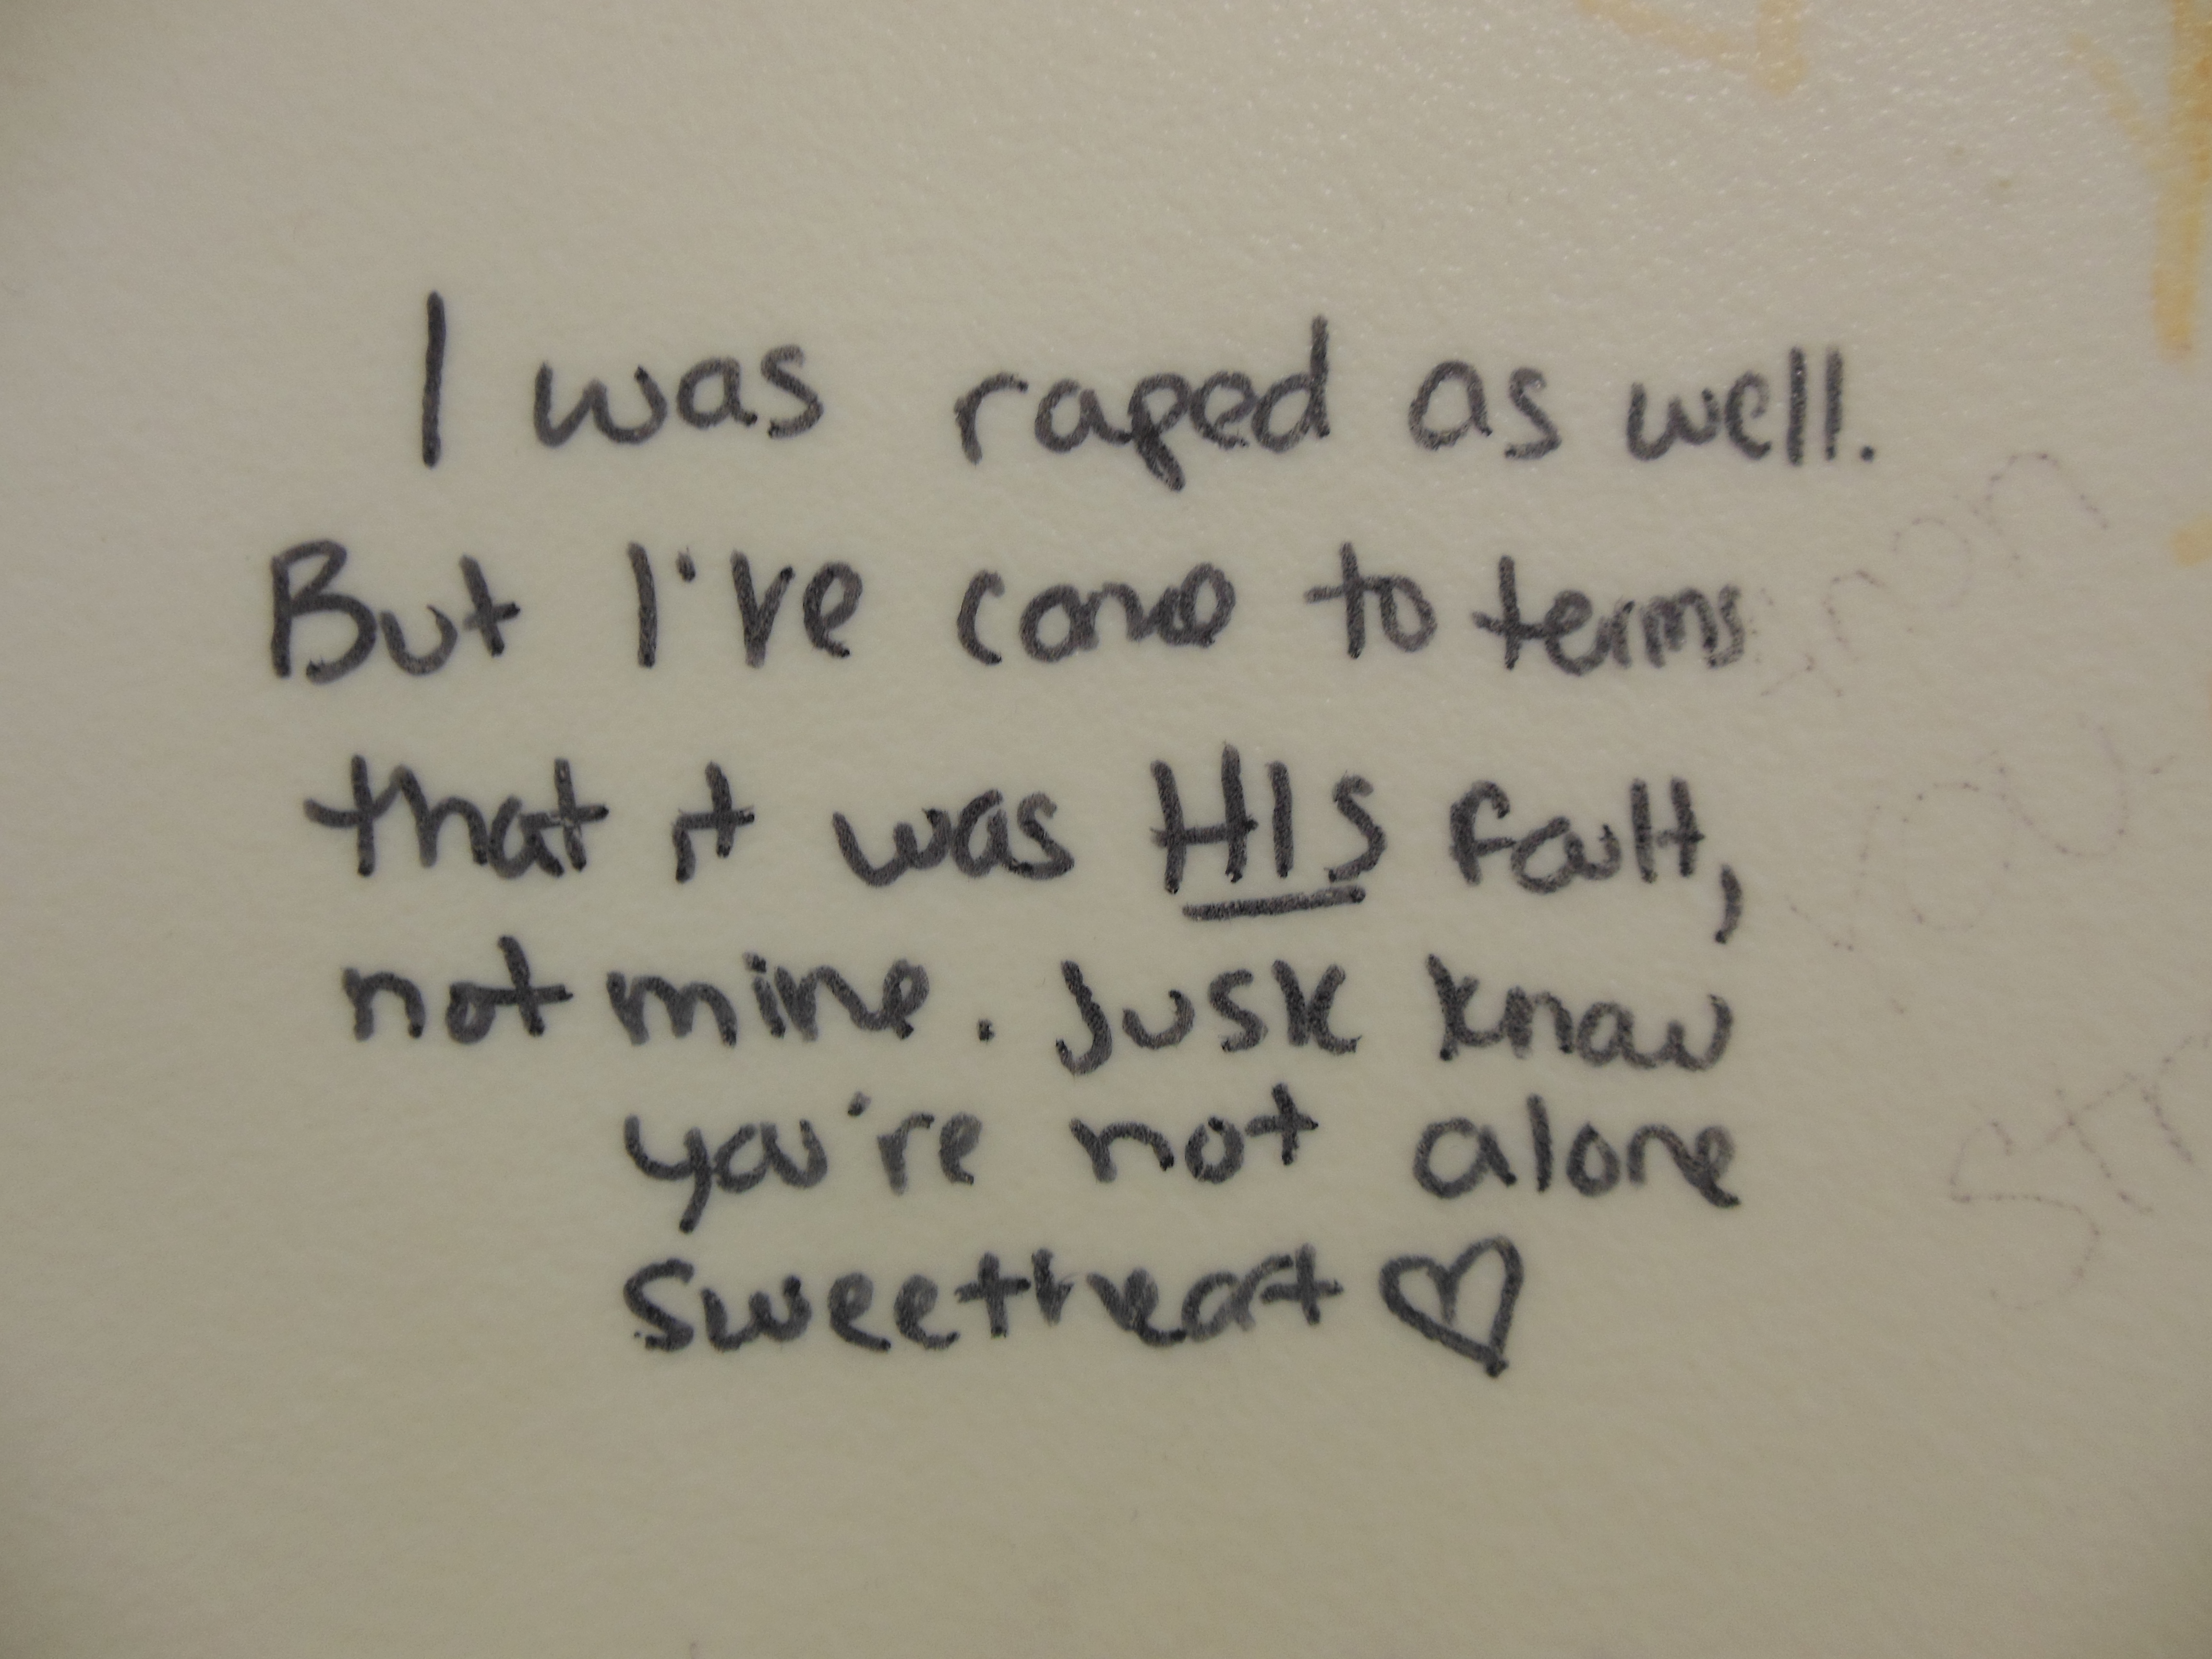 I was raped as well.
But I've come to terms
that it was HIS fault,
not mine. Just know
you're not alone
sweetheart ♡